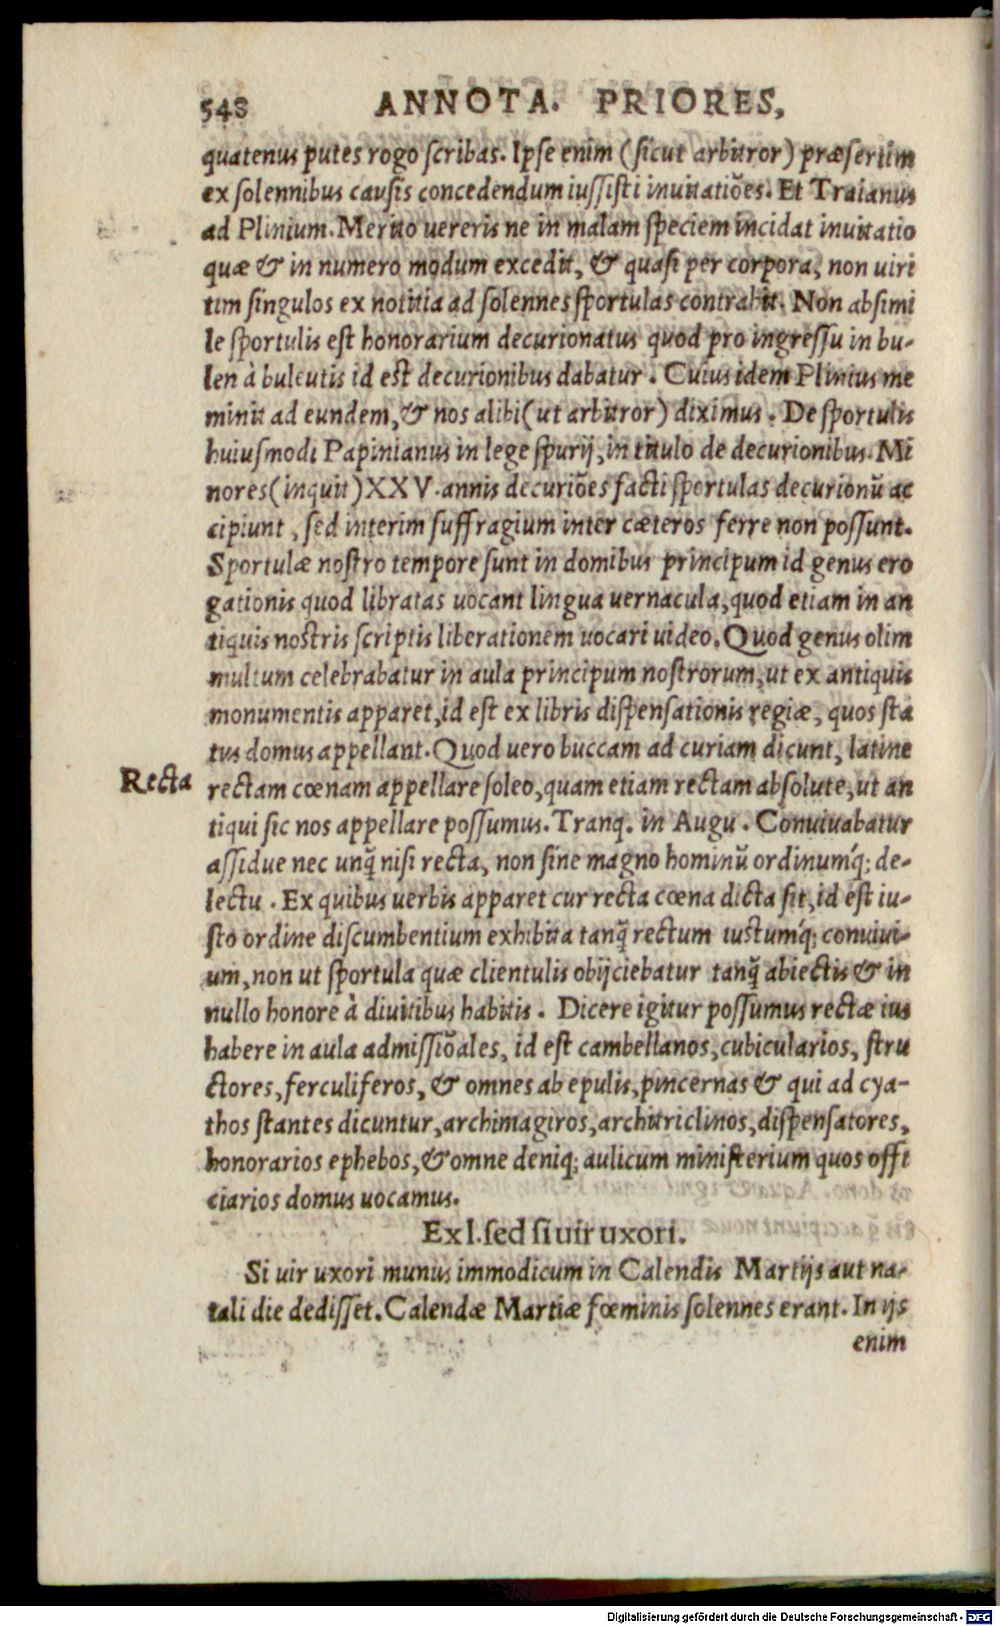 548 ANNOTA. PRIORES,
quatenus putes rogo scribas. Ipse enim (sicut arbitror) præsertim
ex solennibus causis concedendum iussisti inuitatiões. Et Traianus
ad Plinium. Merito uereris ne in malam speciem incidat inuitatio
quæ & in numero modum excedit, & quasi per corpora, non uiri
tim singulos ex notitia ad solennes sportulas contrahit. Non absimi
le sportulis est honorarium decurionatus quod pro ingressu in bu-
len à buleutis id est decurionibus dabatur. Cuius idem Plinius me
minit ad eundem, & nos alibi (ut arbitror) diximus. De sportulis
huiusmodi Papinianus in lege spurij, in titulo de decurionibus. Mi
nores (inquit) XXV. annis decuriões facti sportulas decurionũ ac
cipiunt, sed interim suffragium inter cæteros ferre non possunt.
Sportulæ nostro tempore sunt in domibus principum id genus ero
gationis quod libratas uocant lingua uernacula, quod etiam in an
tiquis nostris scriptis liberationem uocari uideo. Quod genus olim
multum celebrabatur in aula principum nostrorum, ut ex antiquis
monumentis apparet, id est ex libris dispensationis regiæ, quos sta
tus domus appellant. Quod uero buccam ad curiam dicunt, latine
Recta rectam cœnam appellare soleo, quam etiam rectam absolute, ut an
tiqui sic nos appellare possumus. Tranq. in Augu. Conuiuabatur
assidue nec unq̃ nisi recta, non sine magno hominũ ordinumq́; de-
lectu. Ex quibus uerbis apparet cur recta cœna dicta sit, id est iu-
sto ordine discumbentium exhibita tanq̃ rectum iustumq́; conuiui-
um, non ut sportula quæ clientulis obijciebatur tanq̃ abiectis & in
nullo honore à diuitibus habitis. Dicere igitur possumus rectæ ius
habere in aula admissiõales, id est cambellanos, cubicularios, stru
ctores, ferculiferos, & omnes ab epulis, pincernas & qui ad cya-
thos stantes dicuntur, archimagiros, architriclinos, dispensatores,
honorarios ephebos, & omne deniq; aulicum ministerium quos offi
ciarios domus uocamus.
Ex l. sed si uir uxori.
Si uir uxori munus immodicum in Calendis Martijs aut na-
tali die dedisset. Calendæ Martiæ fœminis solennes erant. In ijs
enim
Digitalisierung gefördert durch die Deutsche Forschungsgemeinschaft - DFG